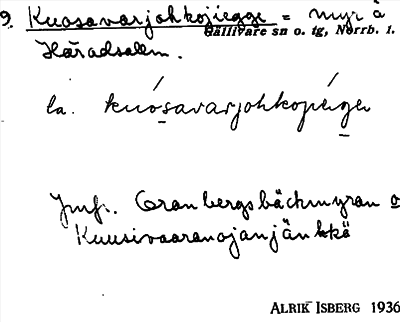 9. Kuosavarjohkojiegge = myr å
Gällivare sn o. tg, Norrb. l.
Häradsalem.
la. kuósavarjohkojiégge
Jmf. Granbergsbäckmyran o
Kuusivaaranojanjänkkä
ALRIK ISBERG 1936